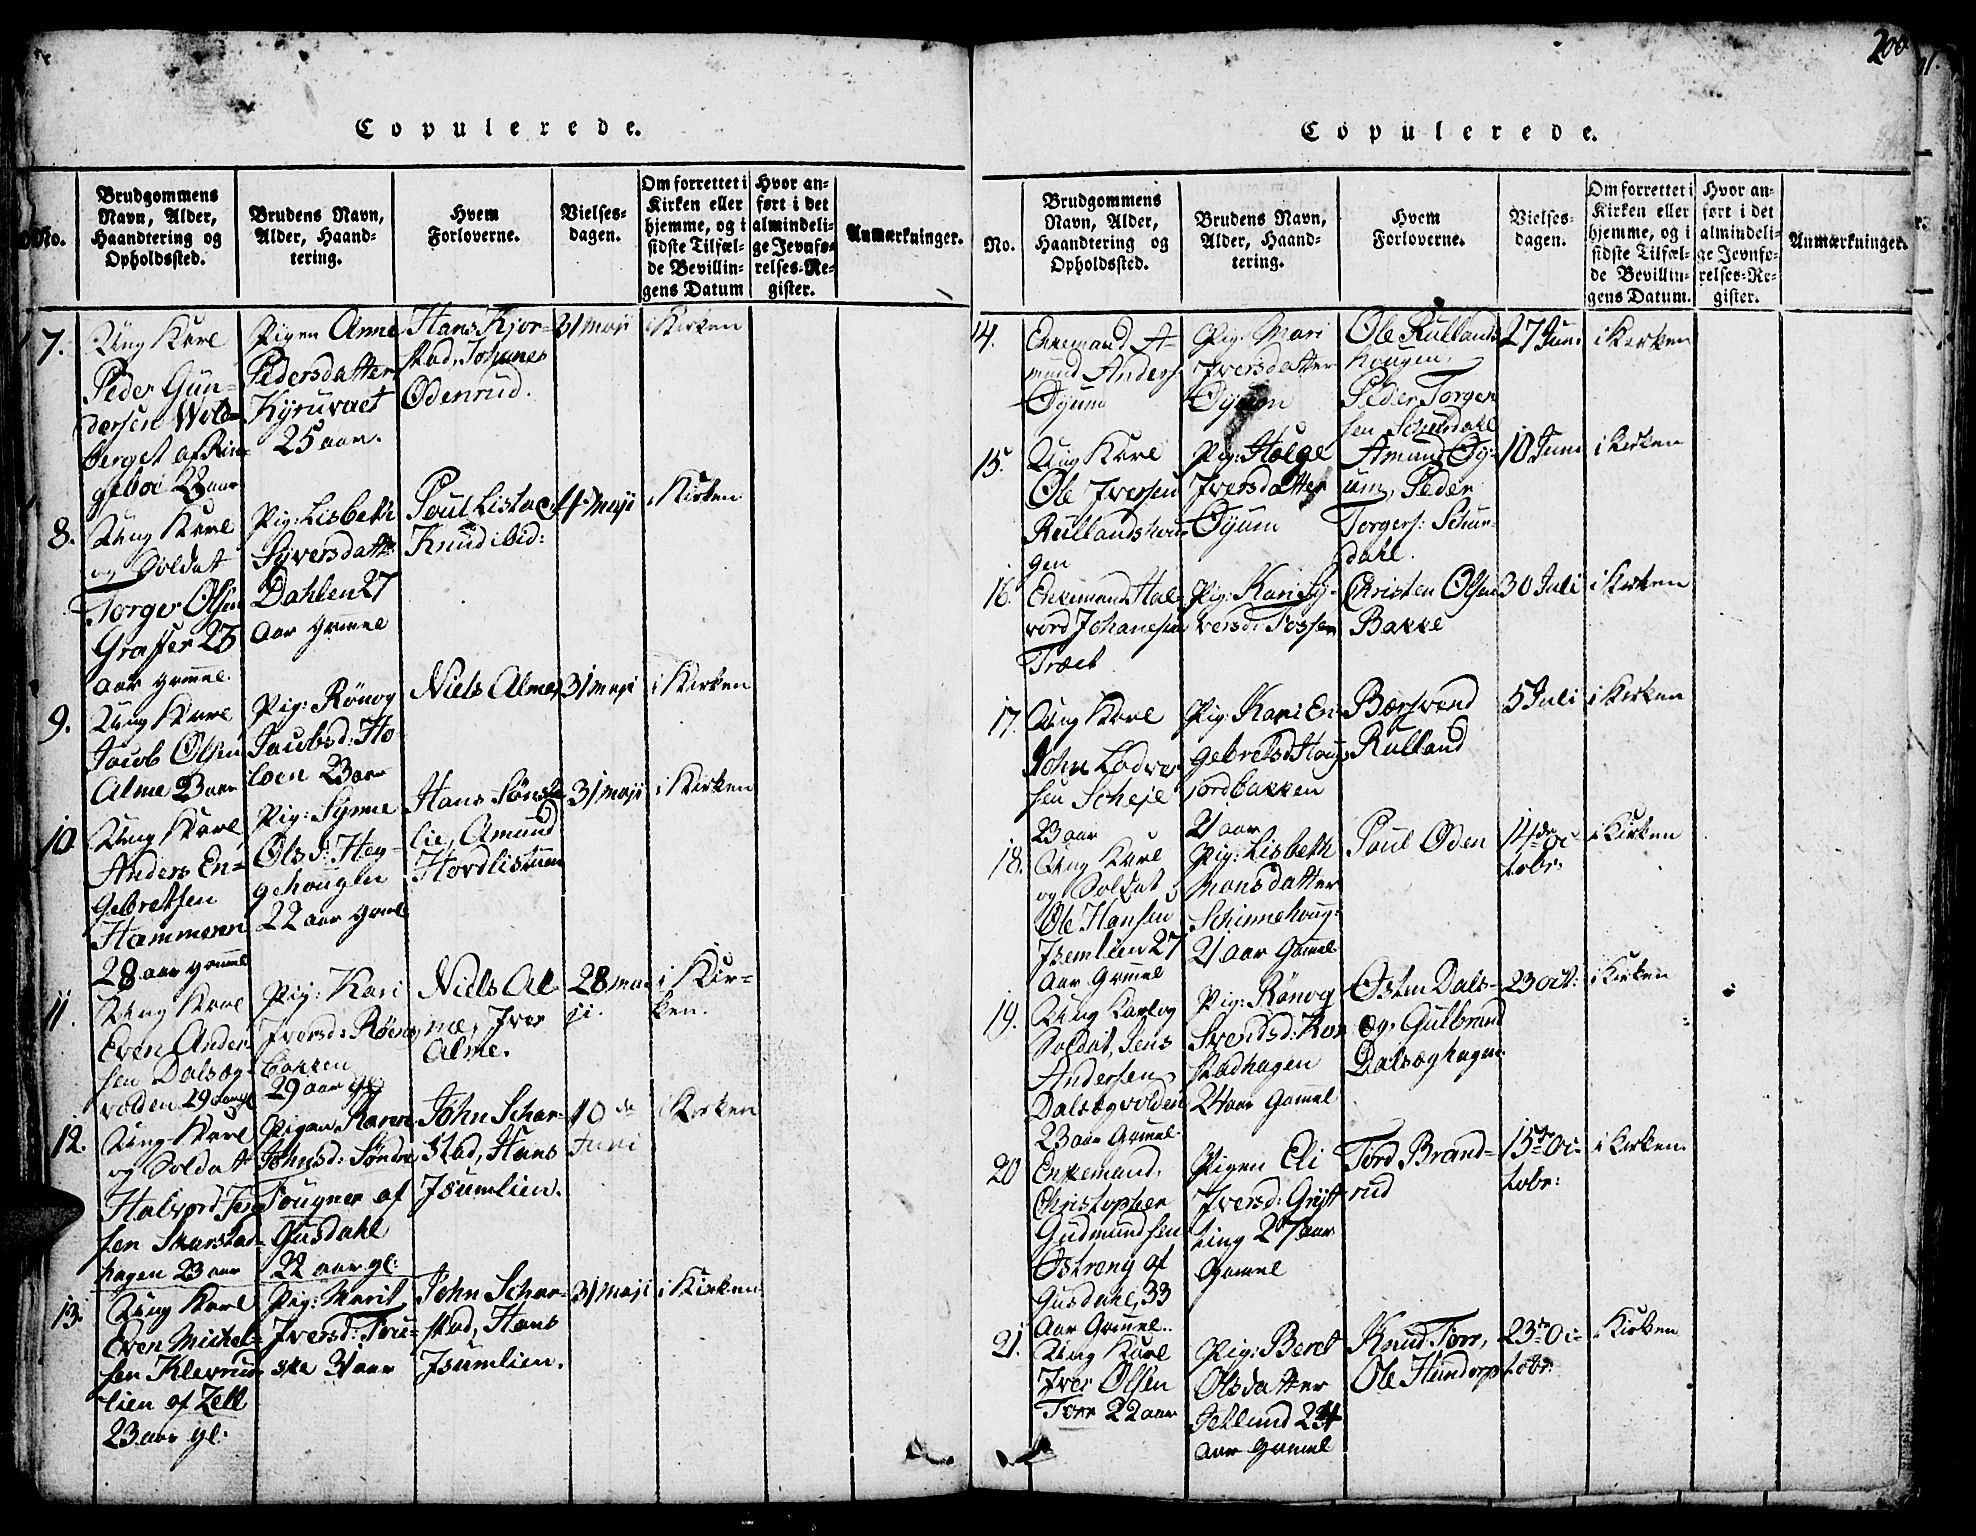 Copulerede.
No.
Brudgommens
Navn, Alder,
Haandtering og
Opholdssted.
Brudens Navn,
Alder, Haand-
tering.
Hvem
Forloverne.
Vielses-
dagen.
Om forrettet i
Kirken eller
hjemme, og i
sidste Tilfæl-
de Bevillin-
gens Datum
Hvor an-
ført i det
almindeli-
ge Jevnfø-
relses-Re-
gister.
Anmærkninger.
7.
Ung Karl
Peder Gun-
dersen
berget af Rin-
geboe 28 aar
Pigen Anne
Pedersdatter
25 aar.
Hans Kjor-
stad, Johanes
Odenrud.
31 Maji
i Kirken
8.
Ung Karl
og Soldat
Torger Olsen
Graffer 23
aar gamel.
Pig: Lisbeth
Syversdatter
Dahlen 27
aar gamel
Poul Listad
Knud ibid:
4 Maji
i Kirken
9.
Ung Karl
Jacob Olsen
Alme 23 aar
Pig: Rönog
Jacobsd: Ho
loen 23 aar
Niels Alme,
31 Maji
i Kirken
10
Ung Karl
Anders En-
gebretsen
Hammeren
28 aar gamel
Pig: Synne
Olsd: Hey-
gehougen
22 aar gaml
Hans Sönste
lie, Amund
Hordlistuen
31 Maji
i Kirken
11.
Ung Karl
Even Ander
sen Dalsæg-
volden 29 aar gl
Pig: Kari
Iversd: Röens
bakken
29 aar gl
Niels Al
me, Iver
Alme.
28 Ma
ji.
i Kir-
ken.
12.
Ung Karl
og Soldat
Halvord
sen Skarstad-
hagen 23 aar
Pigen Karen
Johnsd: Söndre
Fougner af
Gusdahl
22 aar gl:
John Schar-
stad, Hans
Isumlien.
10 de
Juni
i Kirken
13.
Ung Karl
Even Michel-
sen Klevrud
lien af Zell
23 aar gl:
Pig: Marit
Iversd: Tou-
ske 31 aar
John Schar-
stad, Hans
Isumlien.
31 Maji
i Kirken
200
Copulerede.
No.
Brudgommens
Navn, Alder,
Haandtering og
Opholdssted.
Brudens Navn,
Alder, Haand-
tering.
Hvem
Forloverne.
Vielses-
dagen.
Om forrettet i
Kirken eller
hjemme, og i
sidste Tilfæl-
de Bevillin-
gens Datum.
Hvor an-
ført i det
almindeli-
ge Jevnfø-
relses-Re-
gister.
Anmærkninger.
14.
Enkemand A-
mund Anders
Öyum
Pig: Mari
Iversdatter
Öyum
Ole Rullands
hougen,
Peder Torger
sen
27 Juni
i Kirken
15.
Ung Karl
Ole Iversen
Rullandshou
gen
Pig: Helge
Iversdatter
Öyum
Amund Öy-
um, Peder
Torgers: Schur-
dahl.
10 Juni
i Kirken
16.
Enkemand Hal-
vord Johanesen
Træet
Pig: Kari Sy-
versd: Fossen
Christen Olsen
Bakke
30 Juli
i Kirken
17.
Ung Karl
John Lodver
sen Scheje
23 aar
Pig: Kari En
gebretsd: Houg
jordbakken
21 aar
Bærsvend
Rulland
5 Juli
i Kirken
18.
Ung Karl
og Soldat
Ole Hansen
Isemlien 27
aar Gamel
Pig: Lisbeth
Monsdatter
Schinnehoug-
21 aar Gamel
Poul Oden
14 de Oc-
tobr:
i Kirken
19.
Ung Karl og
Soldat, Jens
Andersen
Dalsægvolden
23 aar Gamel.
Pig: Rönog
Svendsd: Kor
stadhagen
24 aar Gamel
Östen Dals-
eg, Gulbrand
Dalsæghagen
23 Oct:
i Kirken
20
Enkemand,
Christopher
Gudmundsen
Östreng af
Gusdahl, 33
Aar Gamel.
Pigen Eli
Iversd: Gryt-
ting 27 aar
Gamel
Tord Brand-
rud
15 de Oc-
tobr:
i Kirken
21.
Ung Karl
Iver Olsen
Torr 22 aar
Pig: Beret
Olsdatter
24
aar Gamel
Knud Torr,
Ole Hundorp
23 de Oc-
tobr
i Kirken